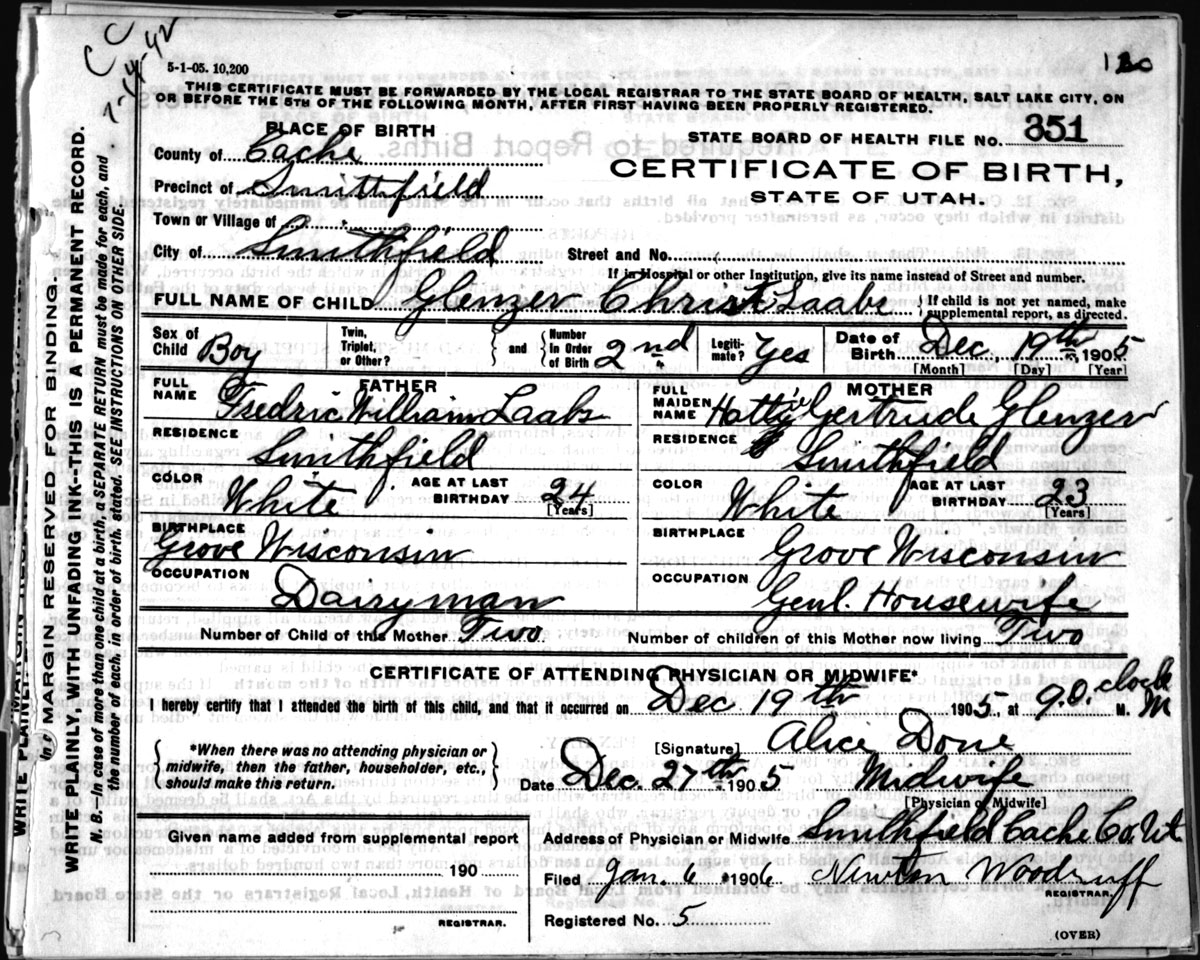 CC
7-14-42
5-1-05. 10,200
THIS CERTIFICATE MUST BE FORWARDED BY THE LOCAL REGISTRAR TO THE STATE BOARD OF HEALTH, SALT LAKE CITY, ON
OR BEFORE THE 5TH OF THE FOLLOWING MONTH, AFTER FIRST HAVING BEEN PROPERLY REGISTERED.
PLACE OF BIRTH
STATE BOARD OF HEALTH FILE NO. 351
County of Cache
CERTIFICATE OF BIRTH,
Precinct of Smithfield
STATE OF UTAH.
Town or Village of
City of Smithfield Street and No.
If in Hospital or other Institution, give its name instead of Street and number.
FULL NAME OF CHILD Glenzer Christ Laabs } If child is not yet named, make supplemental report, as directed.
Sex of Child Boy Twin, Triplet, or Other? } and { Number in Order of Birth 2nd Legiti-mate? Yes Date of Birth Dec. 19th 1905
[Month] [Day] [Year]
FATHER MOTHER
FULL NAME Fredric William Laabs FULL MAIDEN NAME Hattie Gertrude Glenzer
RESIDENCE Smithfield RESIDENCE Smithfield
COLOR White AGE AT LAST BIRTHDAY 24 [Years] COLOR White AGE AT LAST BIRTHDAY 23 [Years]
BIRTHPLACE Grove Wisconsin BIRTHPLACE Grove Wisconsin
OCCUPATION Dairyman OCCUPATION Genl. Housewife
Number of Child of this Mother Two. Number of children of this Mother now living Two
CERTIFICATE OF ATTENDING PHYSICIAN OR MIDWIFE*
I hereby certify that I attended the birth of this child, and that it occurred on Dec 19th 1905, at 9.O. clock M. M
*When there was no attending physician or
midwife, then the father, householder, etc.,
should make this return.
[Signature] Alice Done
Date Dec. 27th 1905 Midwife
[Physician or Midwife]
Address of Physician or Midwife Smithfield Cache Co. Ut
Given name added from supplemental report
190
REGISTRAR.
Filed Jan. 6 1906. Newton Woodruff
REGISTRAR.
Registered No. 5
(OVER)
MARGIN RESERVED FOR BINDING.
WRITE PLAINLY, WITH UNFADING INK--THIS IS A PERMANENT RECORD.
N. B.--In case of more than one child at a birth, a SEPARATE RETURN must be made for each, and
the number of each, in order of birth, stated. SEE INSTRUCTIONS ON OTHER SIDE.